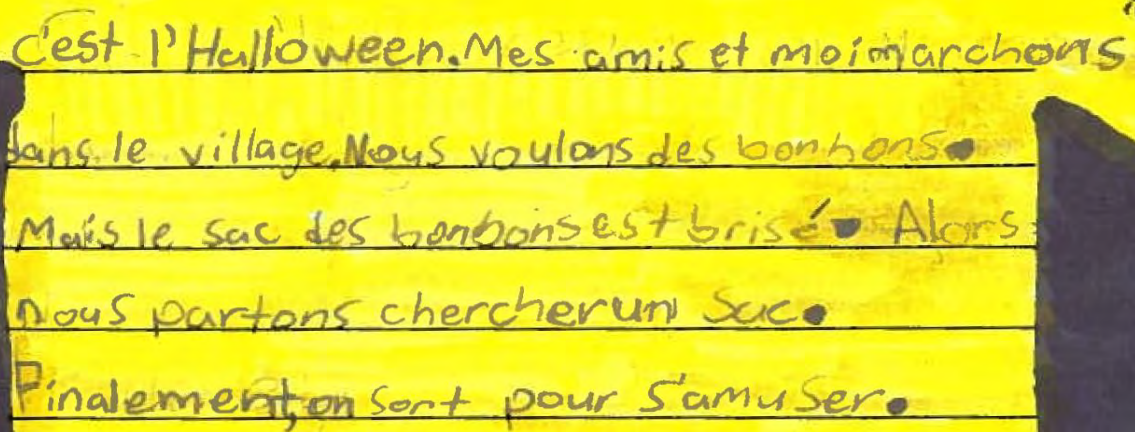 C'est l'Halloween. Mes amis et moi marchons
dans le village. Nous voulons des bonbons.
Mais le sac des bonbons est brisé. Alors
nous partons chercher un sac.
Finalement, on sort pour s'amuser.